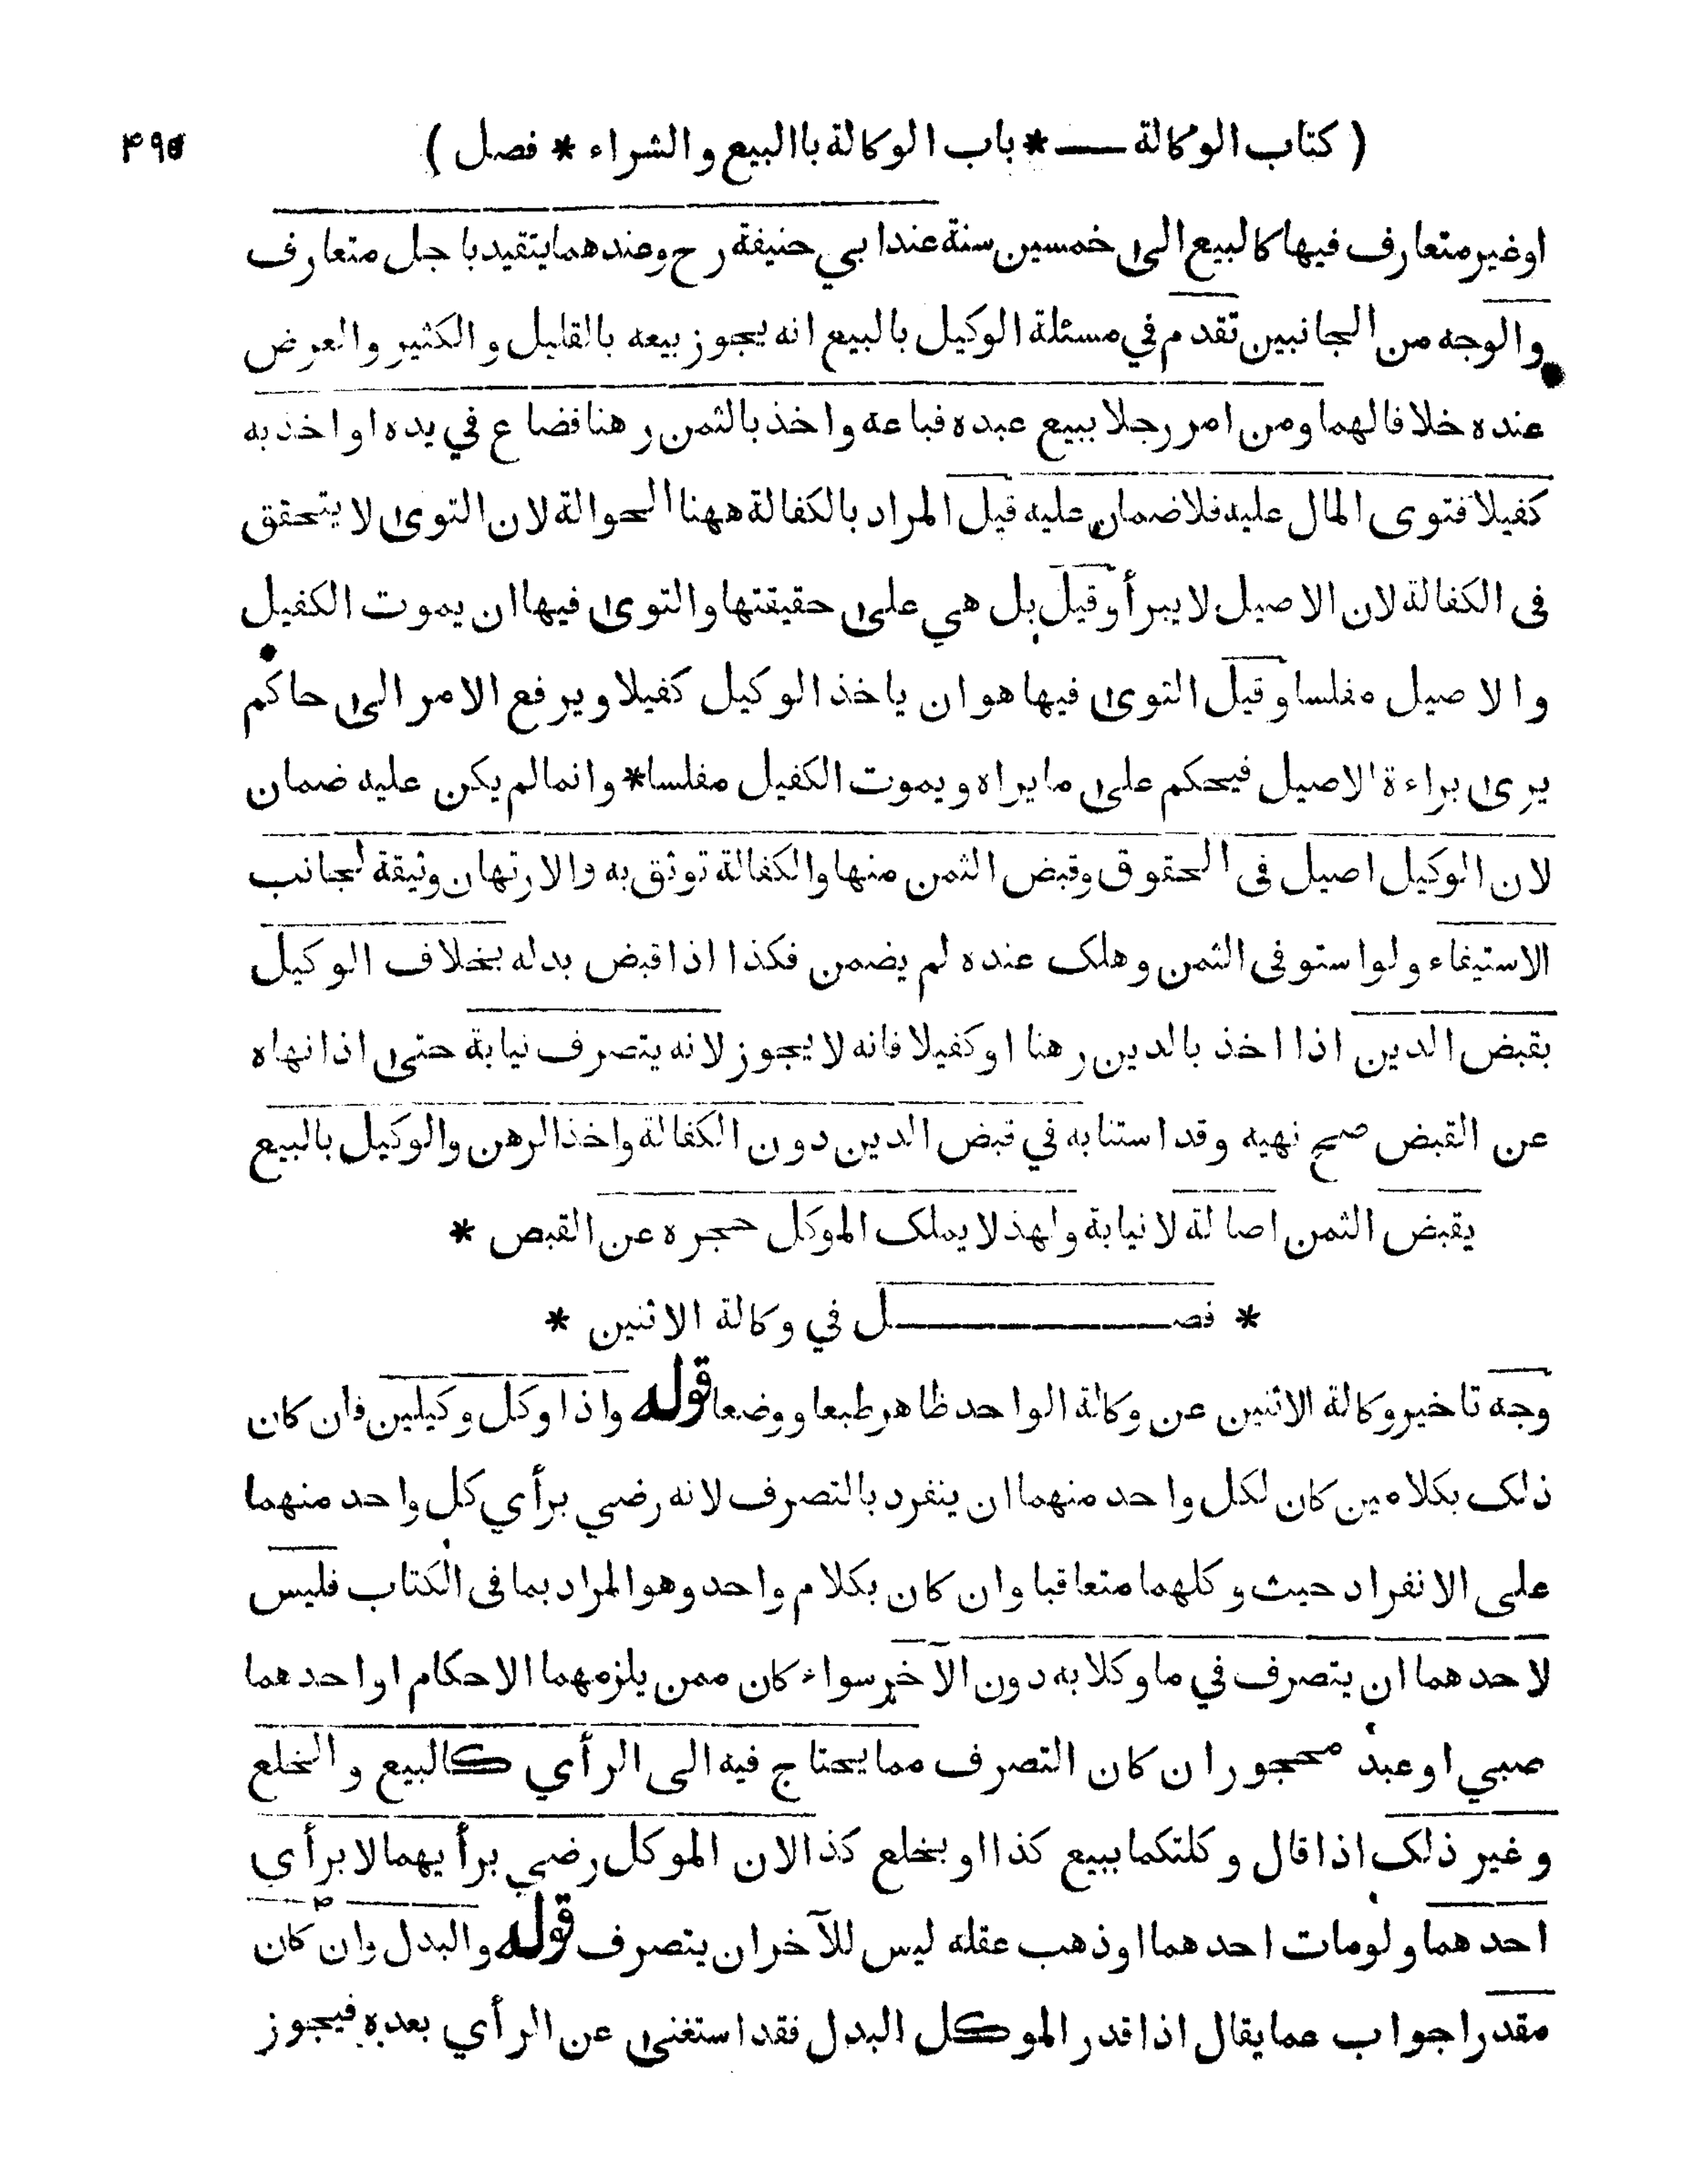 ( كتاب الوكالة ـــ * باب الوكالة باالبيع والشراء * فصل ) ۴۹۵
اوغير متعارف فيها كالبيع الى خمسين سنة عند ابي حنيفة رح وعندهما يتقيد باجل متعارف
والوجه من الجانبين تقدم في مسئلة الوكيل بالبيع انه يجوز بيعه بالقليل والكثير والعرض
عنده خلافا لهما ومن امر رجلا ببيع عبده فباعه واخذ بالثمن رهنا فضاع في يده او اخذ به
كفيلا فتوى المال عليه فلا ضمان عليه قيل المراد بالكفالة ههنا الحوالة لان التوى لا يتحقق
فى الكفالة لان الاصيل لا يبرأ وقيل بل هي على حقيقتها والتوى فيها ان يموت الكفيل
والاصيل مفلسا وقيل التوى فيها هو ان ياخذ الوكيل كفيلا ويرفع الامر الى حاكم
يرى براءة الاصيل فيحكم على ما يراه ويموت الكفيل مفلسا * وانما لم يكن عليه ضمان
لان الوكيل اصيل فى الحقوق وقبض الثمن منها والكفالة توثق به والارتهان وثيقة لجانب
الاستيفاء ولو استوفى الثمن وهلك عنده لم يضمن فكذا اذا قبض بدله بخلاف الوكيل
بقبض الدين اذا اخذ بالدين رهنا او كفيلا فانه لا يجوز لانه يتصرف نيابة حتى اذا نهاه
عن القبض صح نهيه وقد استنابه في قبض الدين دون الكفالة واخذ الرهن والوكيل بالبيع
يقبض الثمن اصالة لا نيابة ولهذ لا يملك الموكل حجره عن القبص *
* فصـــــل في وكالة الاثنين *
وجه تاخير وكالة الاثنين عن وكالة الواحد ظاهر طبعا ووضعا قوله واذا وكل وكيلين فان كان
ذلك بكلامين كان لكل واحد منهما ان ينفرد بالتصرف لانه رضي برأي كل واحد منهما
على الانفراد حيث وكلهما متعاقبا وان كان بكلام واحد وهو المراد بما فى الكتاب فليس
لاحدهما ان يتصرف في ما وكلا به دون الآخر سواء كان ممن يلزمهما الاحكام او احدهما
صبي او عبد محجور ان كان التصرف مما يحتاج فيه الى الرأي كالبيع والخلع
وغير ذلك اذا قال وكلتكما ببيع كذا او بخلع كذا لان الموكل رضي برأيهما لا برأي
احدهما ولو مات احدهما او ذهب عقله ليس للآخر ان يتصرف قوله والبدل وان كان
مقدرا جواب عما يقال اذا قدر الموكل البدل فقد استغنى عن الرأي بعده فيجوز